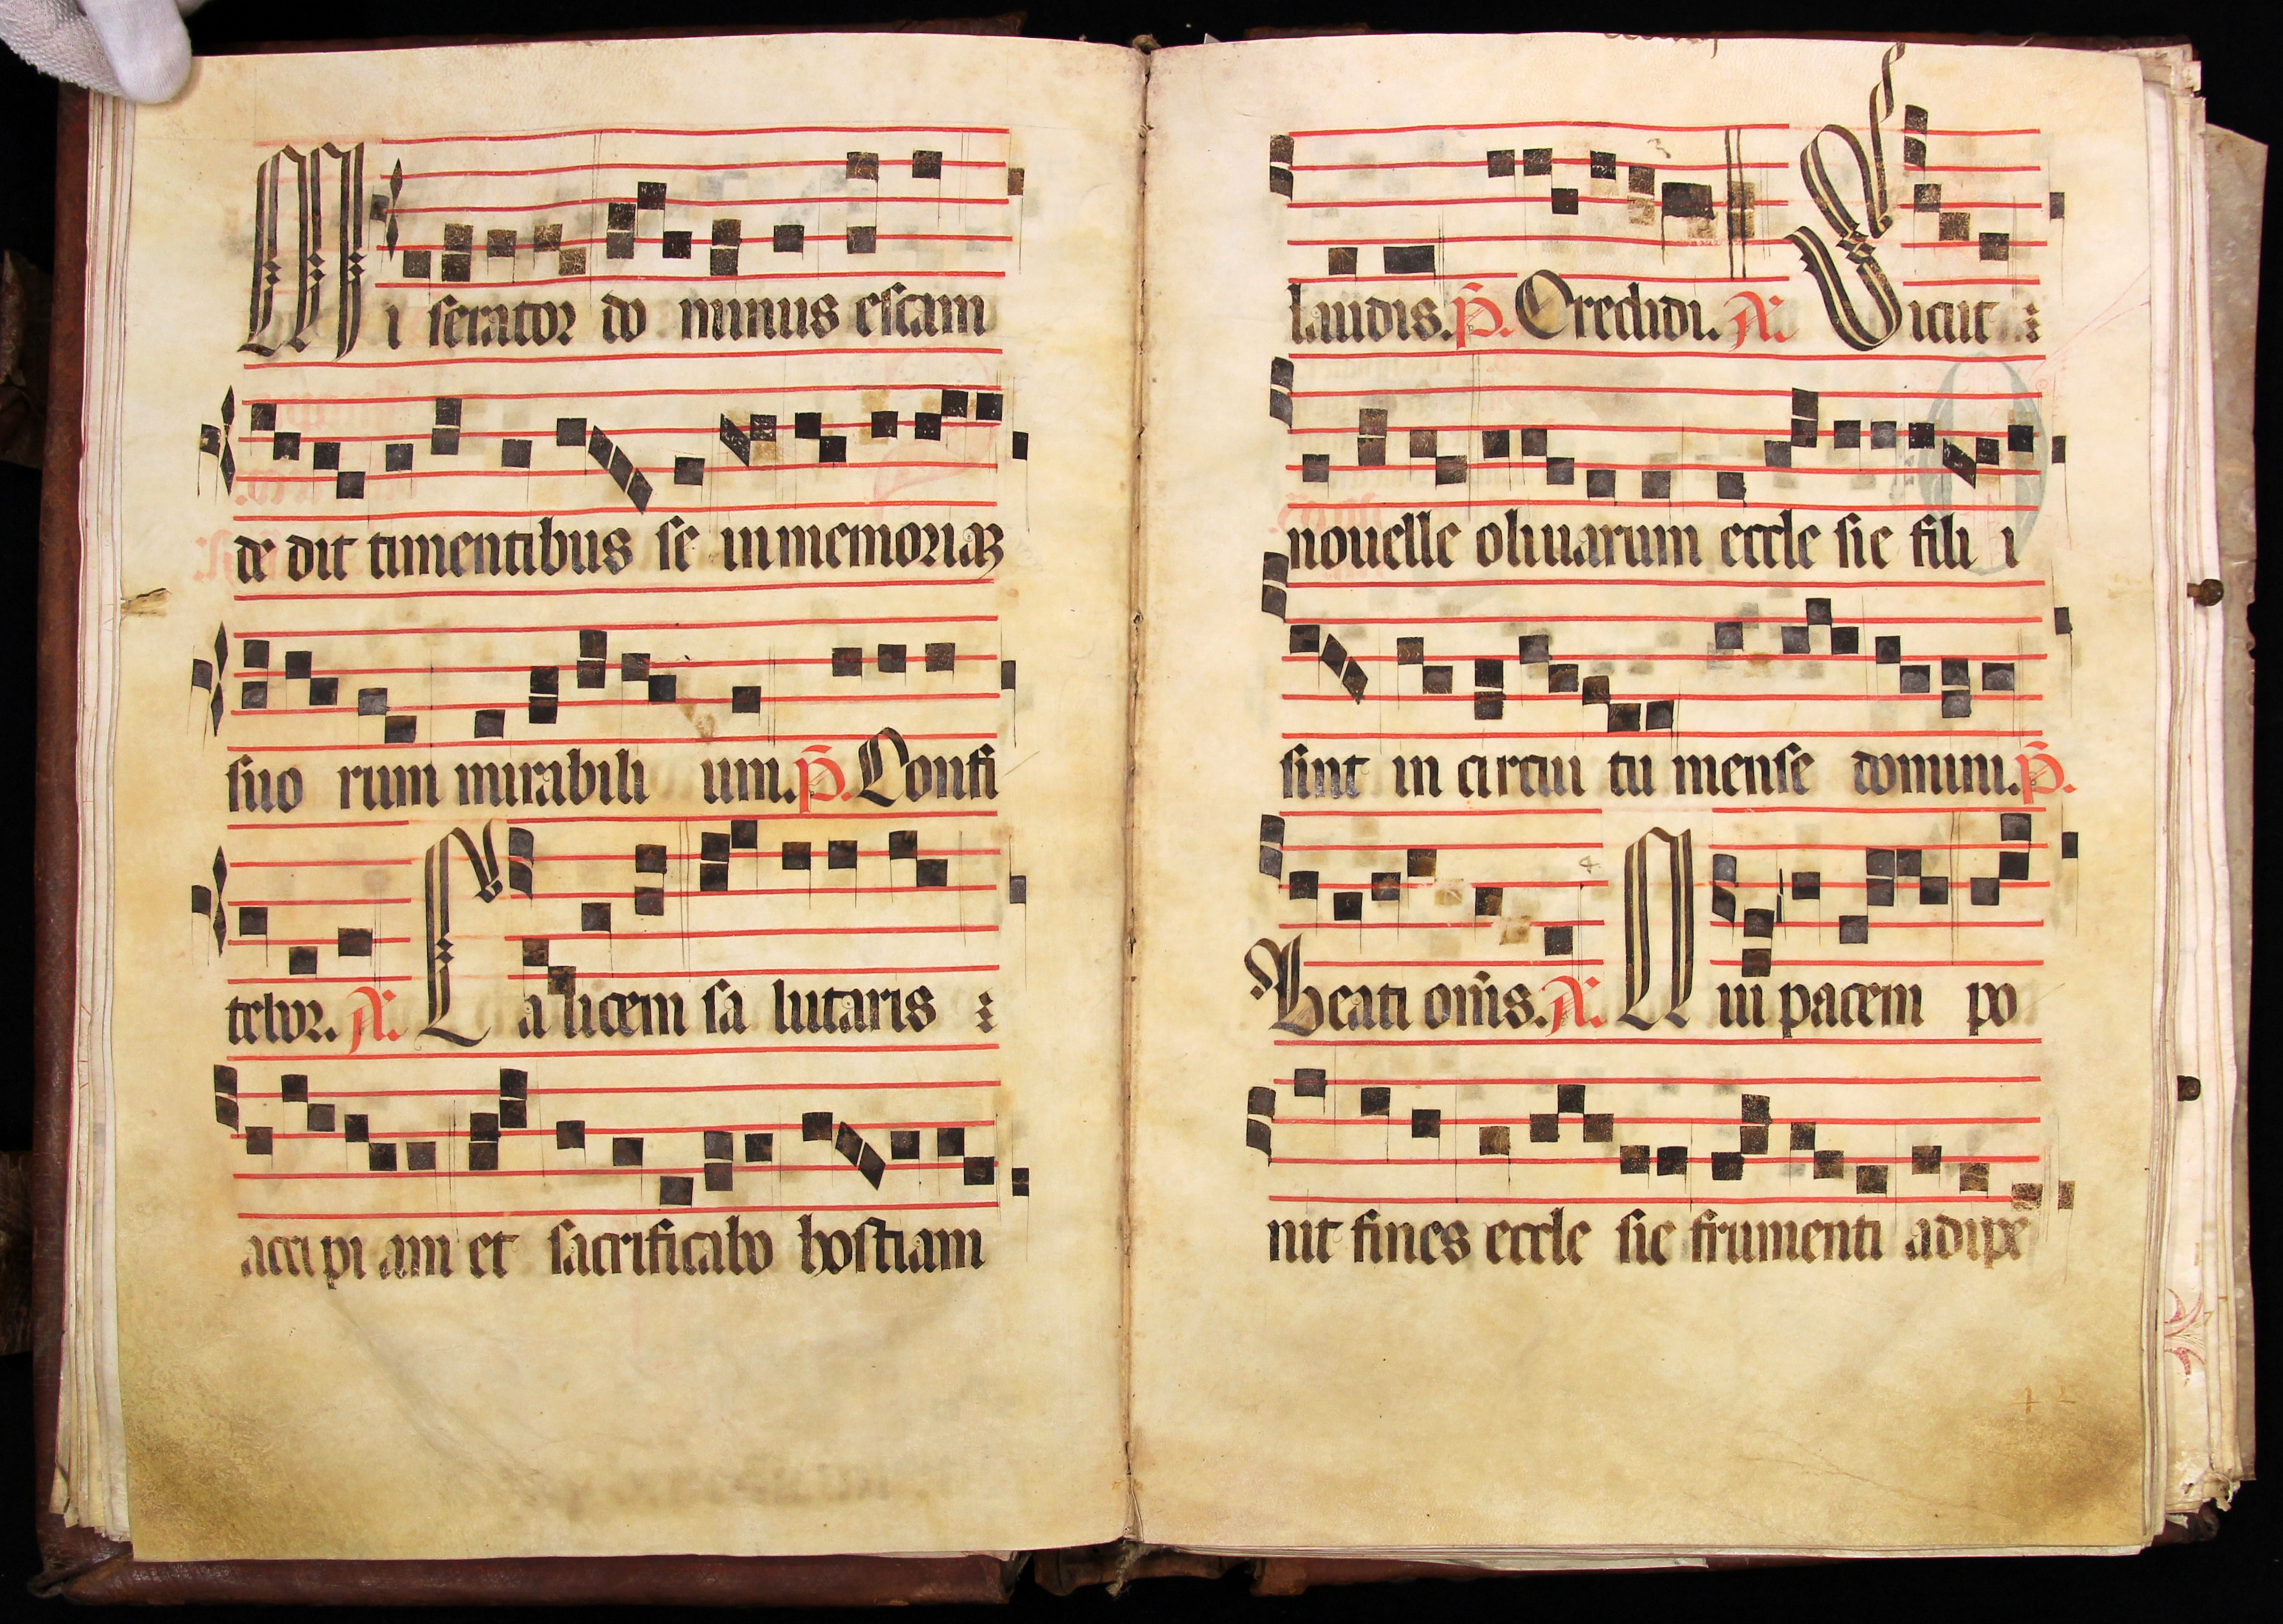 Mi serator do minus escam
de dit timentibus se in memoriaʒ
suo rum mirabili um. p̄. Confi
tebor. A. Calicem sa lutaris
accipi am et sacrificabo hostiam
laudis. p̄. Credidi. A. Sicut
nouelle oliuarum eccle sie fili i
sint in circui tu mense domini. p̄.
Beati om̄s. A. Qui pacem po
nit fines eccle sie frumenti adipe